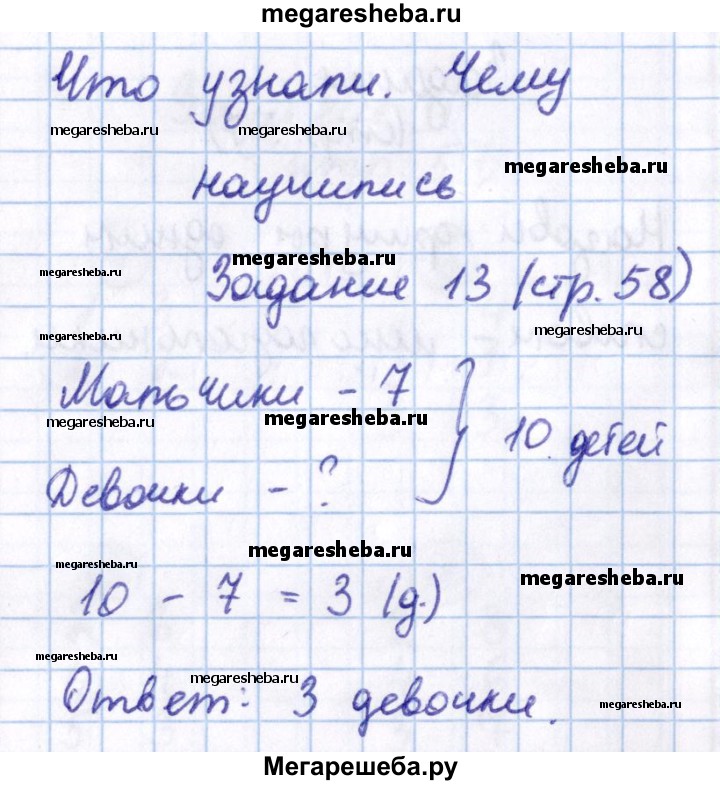 megaresheba.ru
Что узнали. Чему
megaresheba.ru megaresheba.ru
megaresheba.ru
научились
megaresheba.ru
Задание 13 (стр. 58)
megaresheba.ru
megaresheba.ru
Мальчики - 7
megaresheba.ru megaresheba.ru
10 детей
Девочки - ?
megaresheba.ru
megaresheba.ru megaresheba.ru
10 - 7 = 3 (д.)
megaresheba.ru
megaresheba.ru
Ответ: 3 девочки.
megaresheba.ru
Мегарешеба.ру